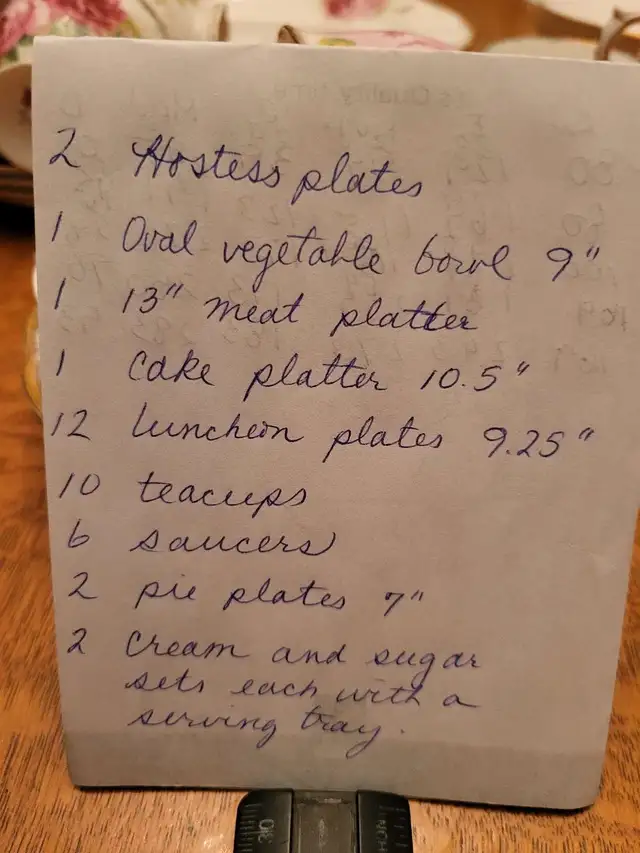 2 Hostess plates
1 Oval vegetable bowl 9"
1 13" meat platter
1 Cake platter 10.5"
12 luncheon plates 9.25"
10 teacups
6 saucers
2 pie plates 7"
2 cream and sugar
sets each with a
serving tray.
30
INCH